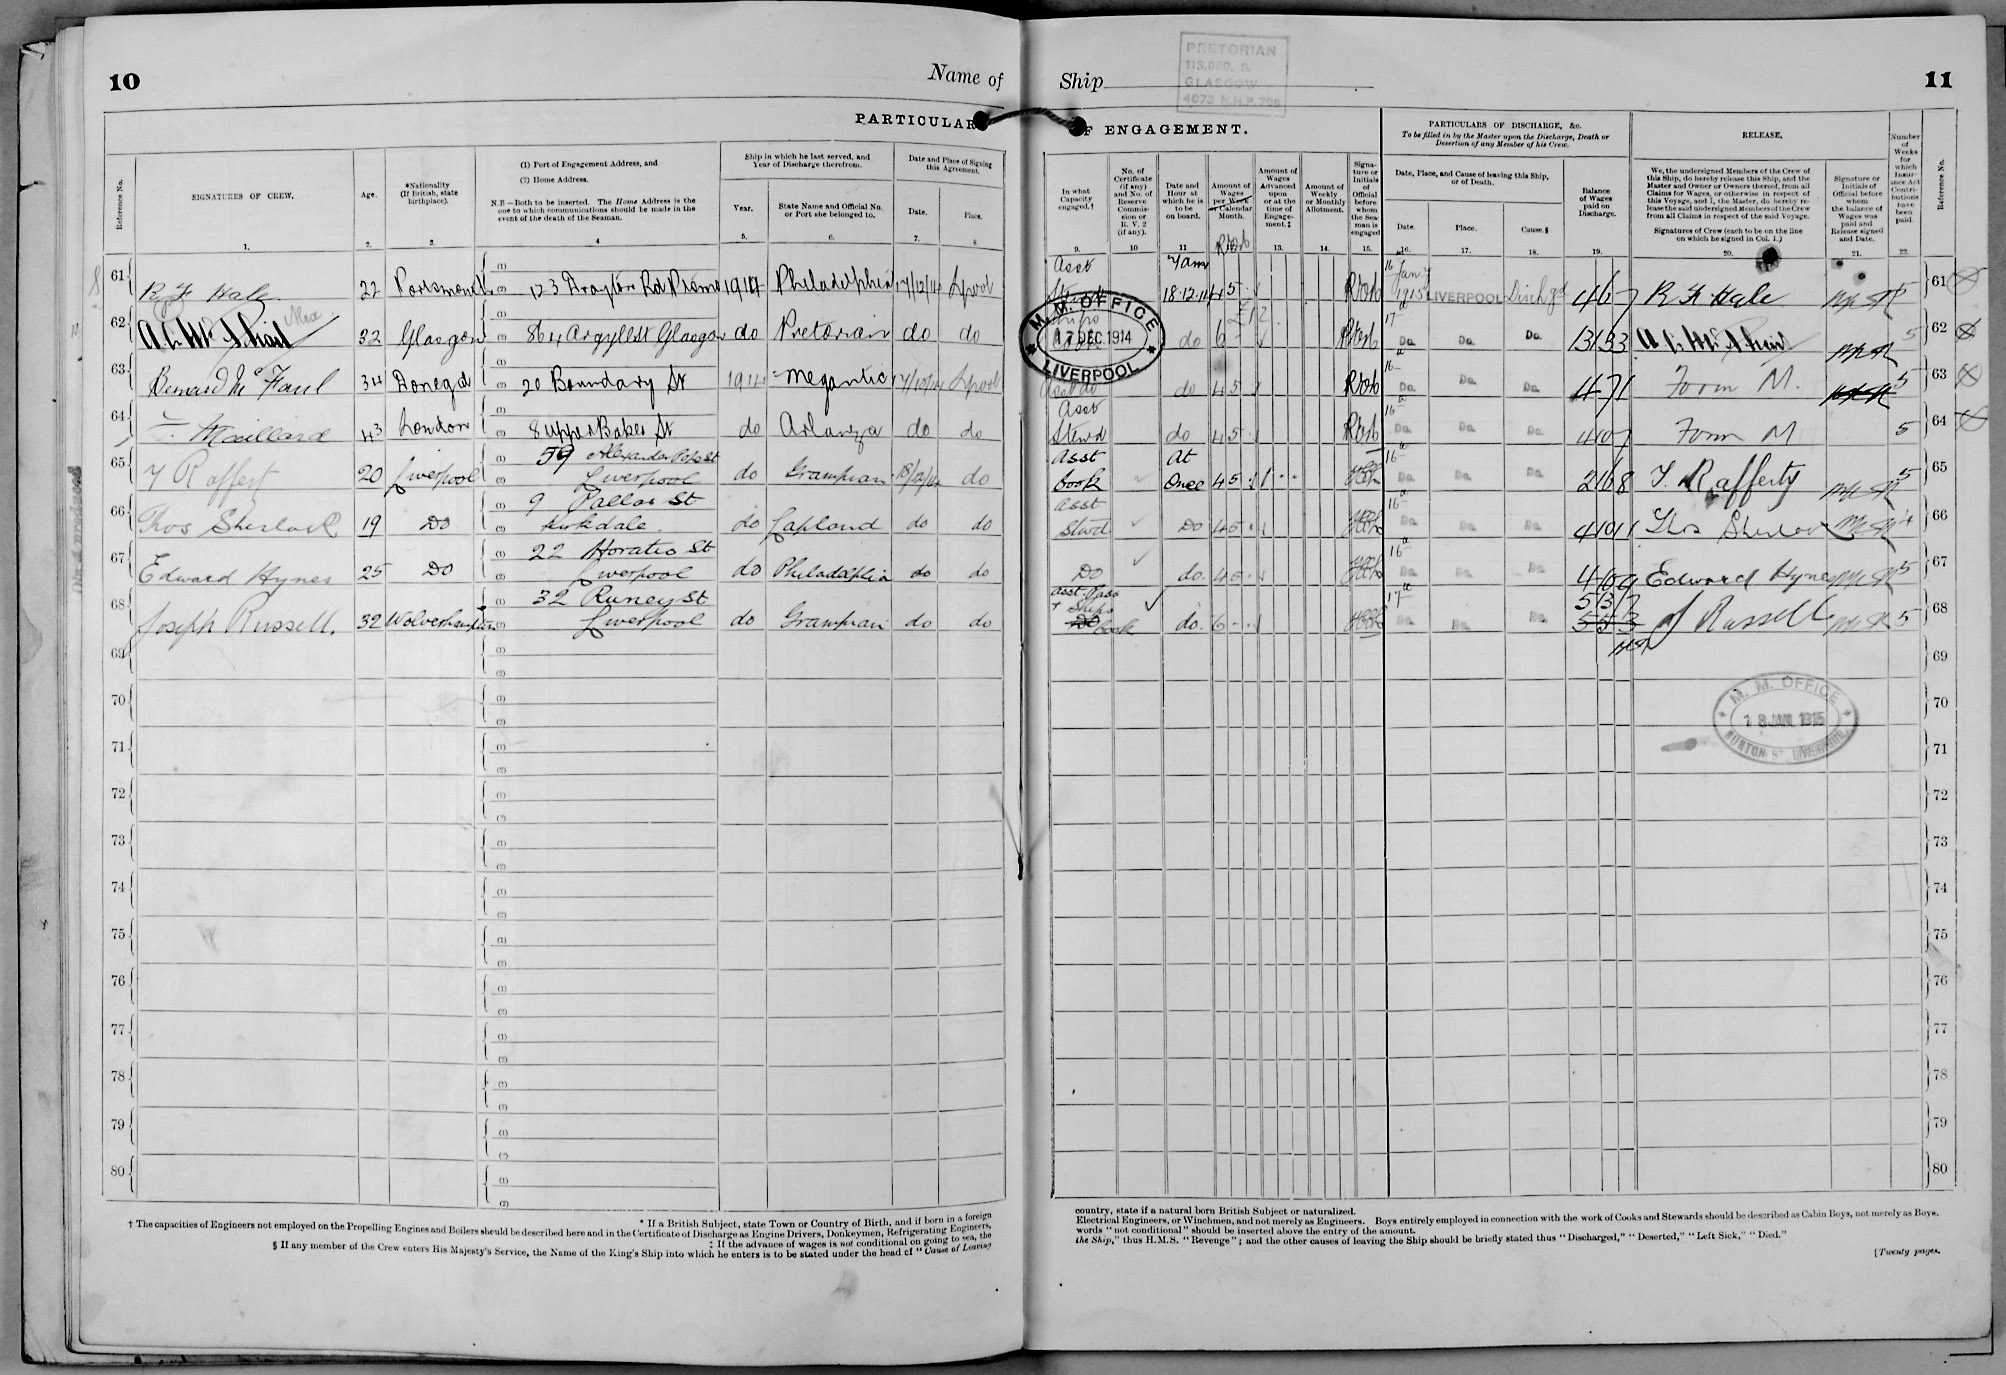 10
Name of
PARTICULARS
Reference No.
SIGNATURES OF CREW.
Age.
*Nationality
(If British, state
birthplace).
(1) Port of Engagement Address, and
(2) Home Address.
N.B—Both to be inserted. The Home Address is the
one to which communications should be made in the
event of the death of the Seaman.
Ship in which he last served, and
Year of Discharge therefrom.
Year.
State Name and Official No.
or Port she belonged to.
Date and Place of Signing
this Agreement.
Date.
Place.
1. 2. 3. 4 5. 6. 7. 8
61 R F Hale 22 Portsmouth 123 Drayton Rd 1914 Philadelphia 17/12/14 Lpool
62 A C McPhail 32 Glasgow 864 Argyll St Glasgow do Pretorian do do
63 Bernard McFaul 34 Donegal 20 Boundary St 1914 Megantic 17/12/14 Lpool
64 F. Maillard 43 London 8 Upper Baker St do Arlanza do do
59 Alexander Pope St
65 T Rafferty 20 Liverpool Liverpool do Grampian 18/12/14 do
9 Pallas St
66 Thos Sherlock 19 Do Kirkdale do Lapland do do
22 Horatio St
67 Edward Hynes 25 Do Liverpool do Philadelphia do do
32 Runey St
68 Joseph Russell. 32 Wolverhampton Liverpool do Grampian do do
69
70
71
72
73
74
75
76
77
78
79
80
* If a British Subject, state Town or Country of Birth, and if born in a foreign
† The capacities of Engineers not employed on the Propelling Engines and Boilers should be described here and in the Certificate of Discharge as Engine Drivers, Donkeymen, Refrigerating Engineers,
‡ If the advance of wages is not conditional on going to sea, the
§ If any member of the Crew enters His Majesty's Service, the Name of the King's Ship into which he enters is to be stated under the head of "Cause of Leaving
Ship
PRETORIAN
GLASGOW
11
OF ENGAGEMENT.
PARTICULARS OF DISCHARGE, &c.
To be filled in by the Master upon the Discharge, Death or
Desertion of any Member of his Crew.
RELEASE,
In what
Capacity
engaged.†
No. of
Certificate
(if any)
and No. of
Reserve
Commis-
sion or
R. V. 2
(if any).
Date and
Hour at
which he is
to be
on board.
Amount of
Wages
per Week
or Calendar
Month.
Amount of
Wages
Advanced
upon
or at the
time of
Engage-
ment.‡
Amount of
Weekly
or Monthly
Allotment.
Signa-
ture or
Initials
of
Official
before
whom
the Sea-
man is
engaged
Date, Place, and Cause of leaving this Ship,
or of Death.
Date
Place.
Cause.§
Balance
of Wages
paid on
Discharge.
We, the undersigned Members of the Crew of
this Ship, do hereby release this Ship, and the
Master and Owner or Owners thereof, from all
Claims for Wages, or otherwise in respect of
this Voyage, and I, the Master, do hereby re-
lease the said undersigned Members of the Crew
from all Claims in respect of the said Voyage.
Signatures of Crew (each to be on the line
on which he signed in Col. 1.)
Signature or
Initials of
Official before
whom
the balance of
Wages was
paid and
Release signed
and Date.
Number
of
Weeks
for
which
Insur-
ance Act
Contri-
butions
have
been
paid.
Reference No.
9. 10 11 13. 14. 15. 16. 17. 18. 19. 20. 21. 22.
Asst 7 am
18.12.14 4 5 16 Jan 1915 LIVERPOOL Dischgd 4 6 7 R F Hale 5 61
M. M. OFFICE
17 DEC 1914
LIVERPOOL
do 6 17 Do Do Do 13 13 3 A C McPhail 5 62
Asst do do 4 5 16 Do Do Do 4 7 1 Form M. 5 63
Asst
Stewd do 4 5 16 Do Do Do 4 0 7 Form M 5 64
Asst At
Cook Once 4 5 16 Do Do Do 2 6 8 T. Rafferty 5 65
Asst
Stwd Do 4 5 16 Do Do Do Thos Sherlock 66
Do do 4 5 16 Do Do Do 4 0 9 Edward Hynes 5 67
Asst Pass
+ Ships 5 3 7
Do Cook do 6 17 Do Do Do 5 5 3 J Russell 5 68
69
70
M. M. OFFICE
18 JAN 1915
BURTON ST. LIVERPOOL
71
72
73
74
75
76
77
78
79
80
country, state if a natural born British Subject or naturalized.
Electrical Engineers, or Winchmen, and not merely as Engineers. Boys entirely employed in connection with the work of Cooks and Stewards should be described as Cabin Boys, not merely as Boys.
words "not conditional" should be inserted above the entry of the amount.
the Ship," thus H.M.S. "Revenge"; and the other causes of leaving the Ship should be briefly stated thus "Discharged," "Deserted," "Left Sick," "Died."
[Twenty pages.